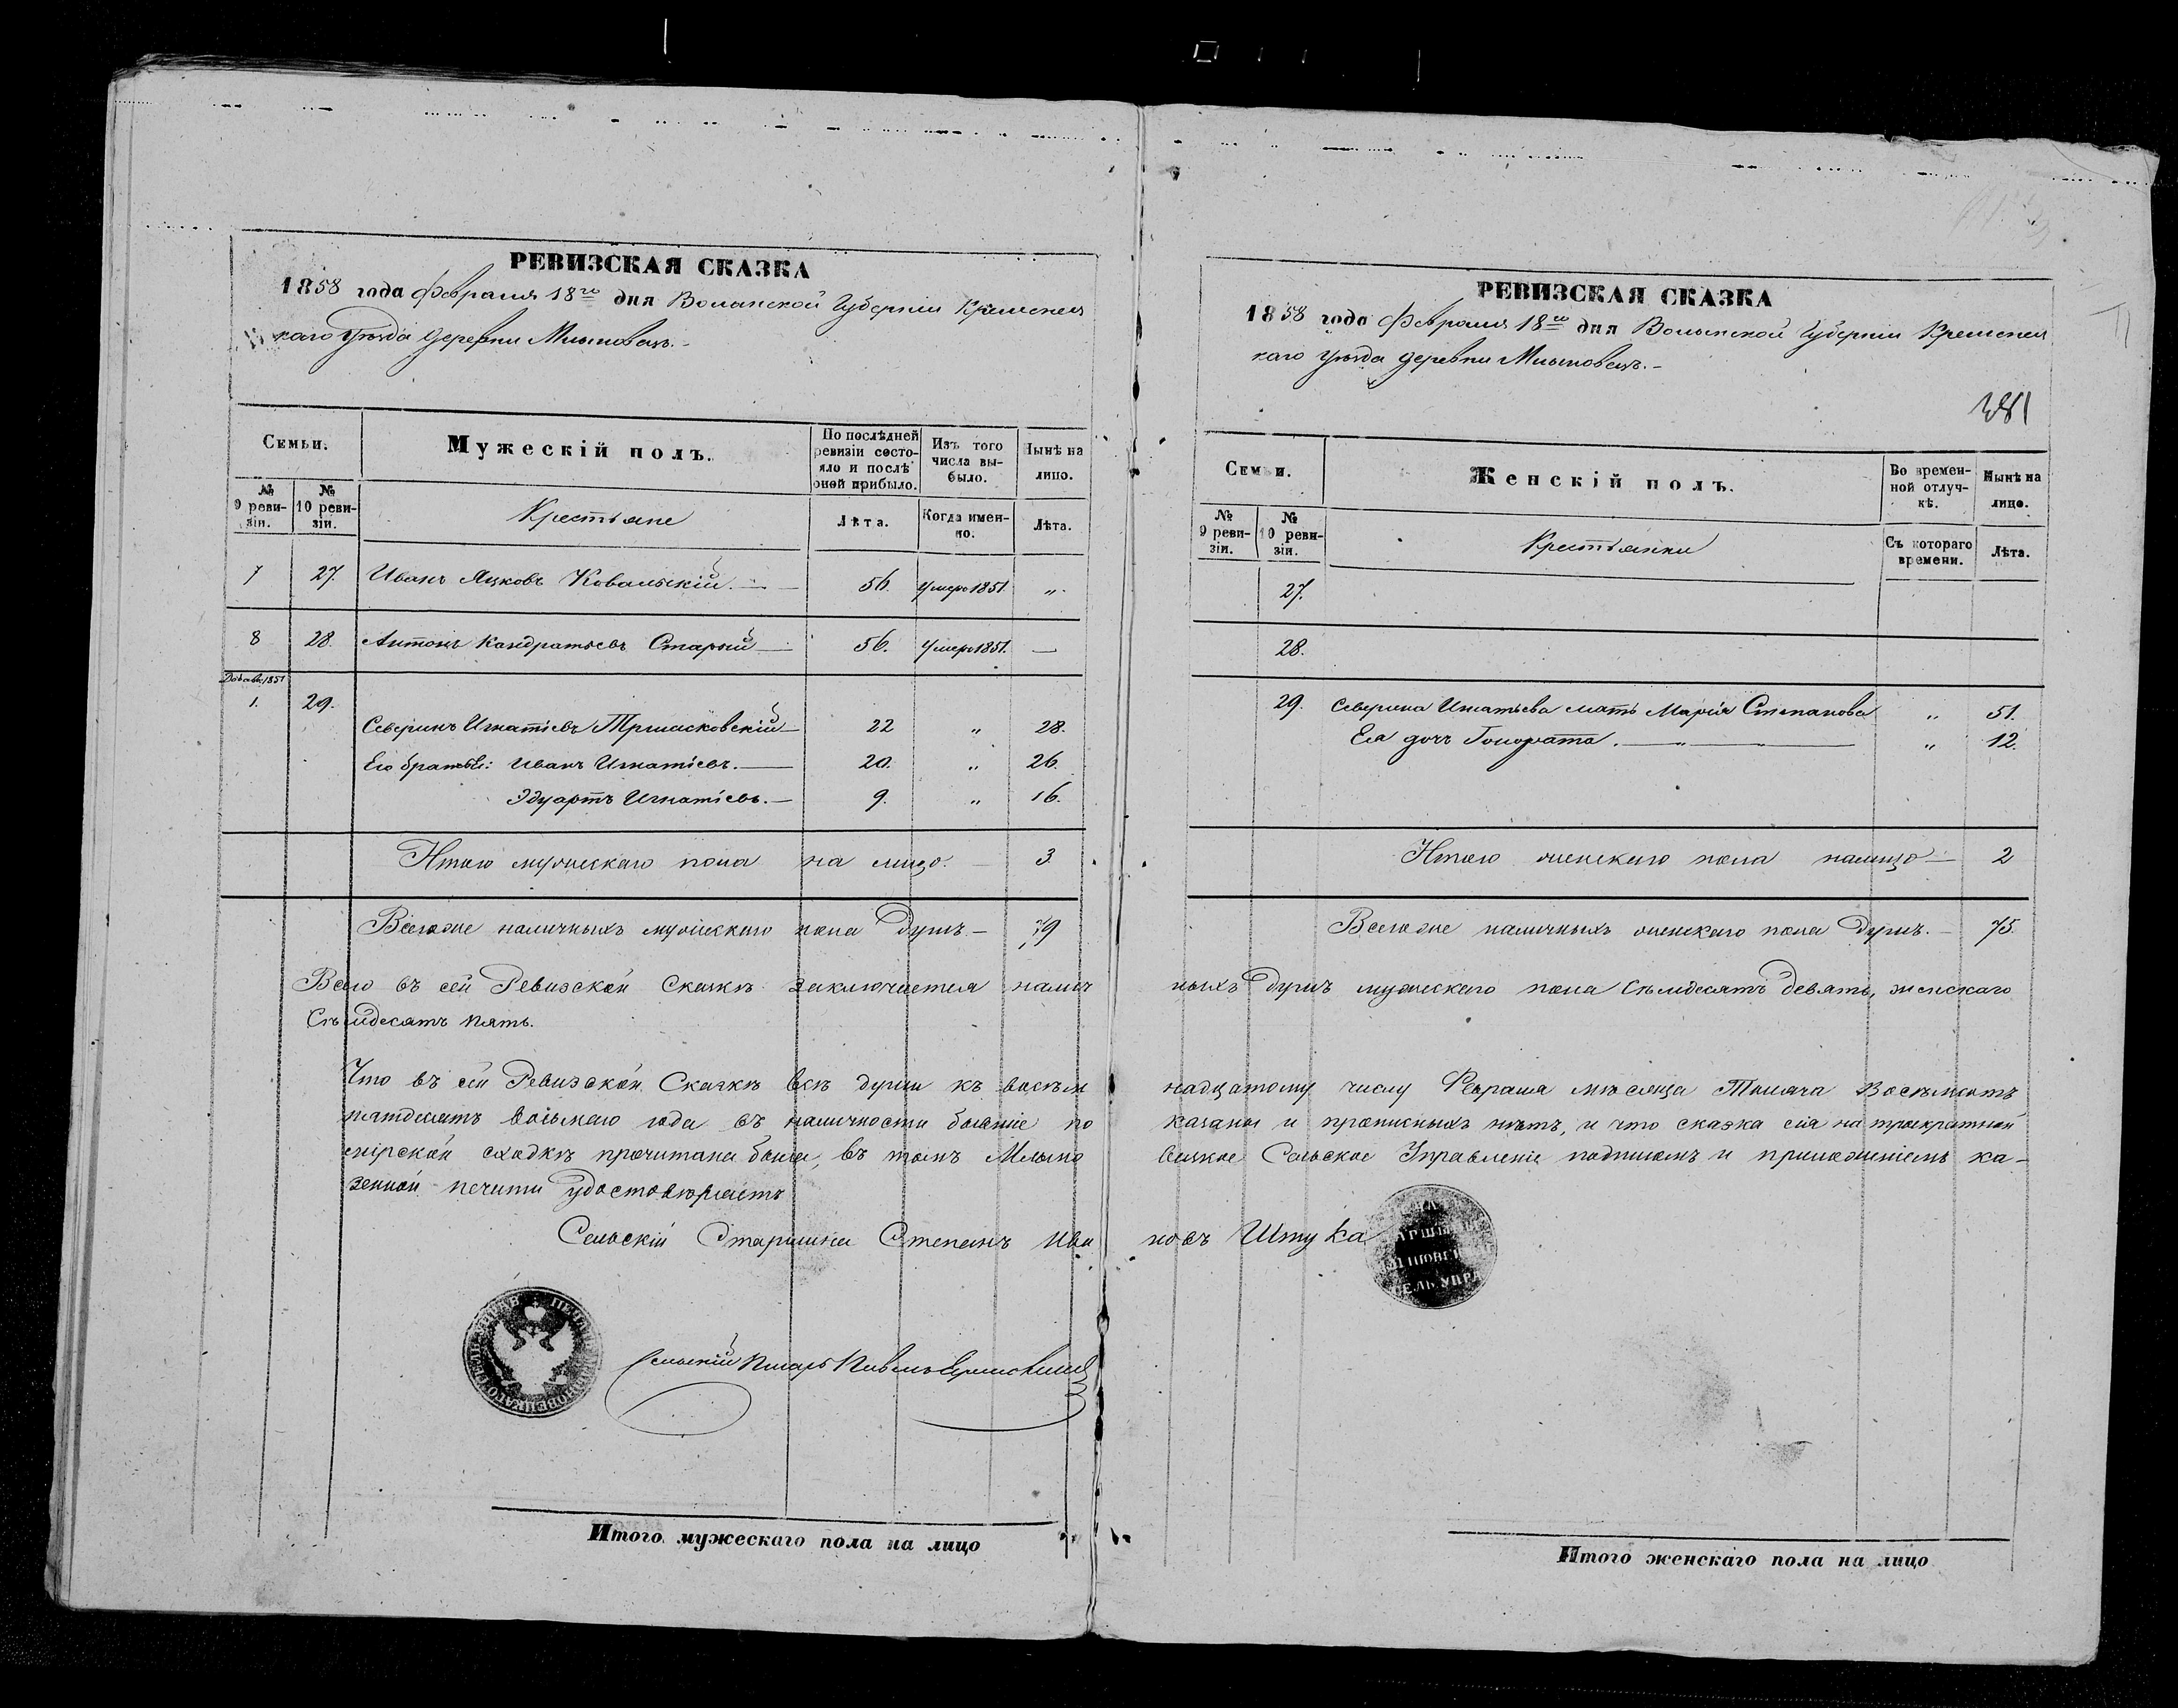 РЕВИЗСКАЯ СКАЗКА
1858 года Февраля 18го дня Волынской Губерніи Кременец
каго Уѣзда деревни Млыновецъ.-
Семьи.
Мужескій полъ.
По послѣдней ревизіи состояло и послѣ оной прибыло.
Изъ того числа выбыло.
Нынѣ на лицо.
№ 9 ревизіи.
№ 10 ревизіи.
Крестьяне
Лѣта.
Когда именно.
Лѣта.
7 27. Иванъ Яцковъ Ковальскій. 56. Умеръ 1851. "
8 28. Антонъ Кандратьевъ Старый 56. Умеръ 1851. —
Добавл. 1851
1. 29.
Северинъ Игнатіевъ 22 " 28.
Его братья: Иванъ Игнатіевъ. 20. " 26.
Эдуартъ Игнатіевъ. 9. " 16.
Итого мужескаго пола на лицо. 3
Всего же наличныхъ мужескаго пола Душъ. 79
Всего въ сей Ревизской Сказкѣ заключается налич
Сѣмдесятъ пять.
Что въ сей Ревизской Сказкѣ всѣ души къ восѣм
пятдесятъ восьмаго года въ наличности бывшіе по
мірской сходкѣ прочитана была, въ томъ Млыно
зенной печати удостовѣряетъ
Сельскій Старшина Степанъ Ива
Сельскій Писарь Павелъ
Итого мужескаго пола на лицо
РЕВИЗСКАЯ СКАЗКА
1858 года Февраля 18го дня Волынской Губерніи Кременец
каго Уѣзда деревни Млыновецъ.-
381
Семьи.
Женскій полъ.
Во временной отлучкѣ.
Нынѣ на лицо.
№ 9 ревизіи.
№ 10 ревизіи.
Крестьянки
Съ котораго времени.
Лѣта.
27.
28.
29. Северина Игнатьева мать Марія Степанова " 51.
Ея дочь Гонората. " 12.
Итого женскаго пола налицо 2
Всего же наличныхъ женскаго пола Душъ. 75.
ныхъ Душъ мужескаго пола Сѣмдесятъ девять, женскаго
надцатому числу Февраля мѣсяца Тысяча Восѣмсотъ
казаны и прописныхъ нѣтъ, и что сказка сія на троекратной
вецкое Сельское Управленіе подписомъ и приложеніемъ ка-
новъ Штука
Итого женскаго пола на лицо